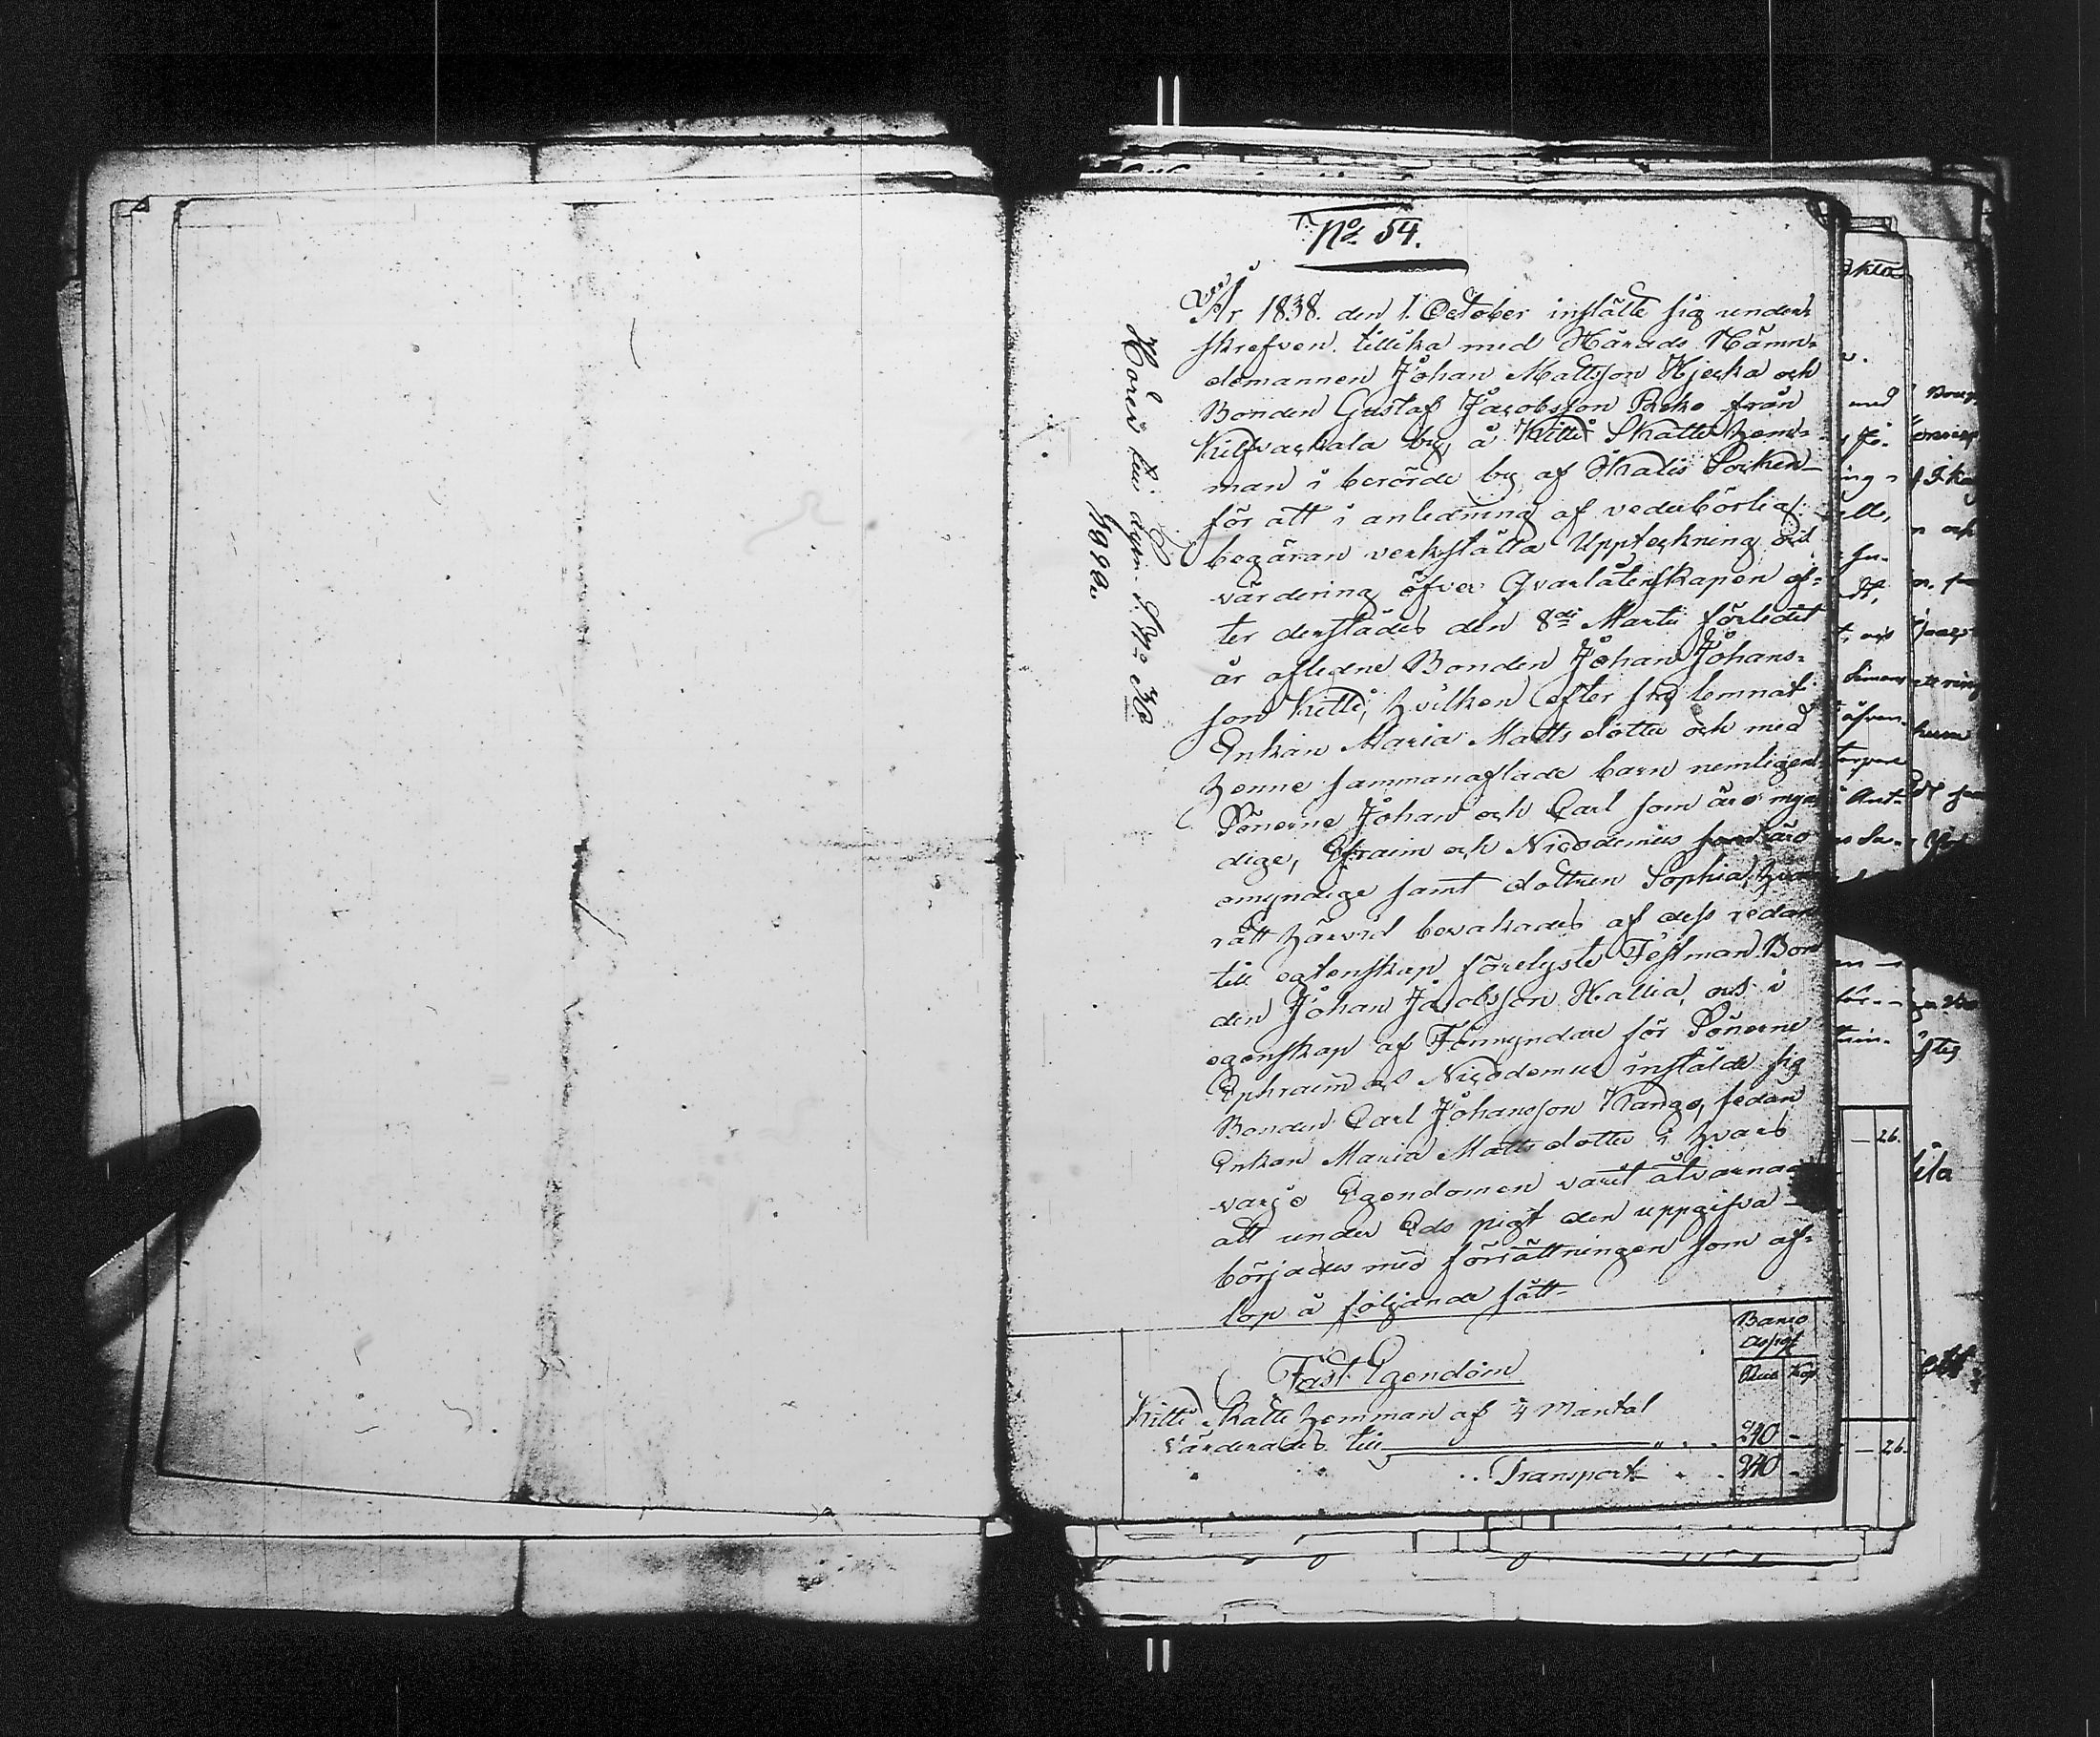 No 54.
År 1838. den 1. October instälte sig under-
skrefven tillika med Härads Nämn-
demannen Johan Mattsson Kjerka och
Bonden Gustaf Jacobsson från
Kilfvackala by, å Kitti Skatte hem-
man i berörde by af Socken
för att i anledning af vederbörlig
begäran verkställa Uppteckning och
värdering öfver Qvarlåtenskapen ef-
ter derstädes den 8de Martii förledit
år aflidne Bonden Johan Johans-
son Kitti, hvilken efter sig lemnat
Enkan Maria Matts dotter och med
henne sammanaflade barn nemligen
Sönerne Johan och Carl som äro myn
dige, Efraim och Nicodemus äro
omyndige samt dottren Sophia, hvars
rätt härvid bevakades af dess redan
till egtenskap förelyste Fästman Bon
den Johan Jacobsson Kallia, och i
egenskap af Förmyndare för Sönerne
Ephraim och Nicodemus instälde sig
Bonden Carl Johansson Kango, sedan
Enkan Maria Matts dotter i hvars
värjo Egendomen varit åtvarnad
att under Eds pligt den uppgifva
börjades med förrättningen som af-
lop å följande sätt
Banco
Assig
Rub Kop
Fast Egendom
Kitti Skatte hemman af 1/4 Mantal
värderades till 240 -
Transport 240 -
Hörer till
1899.